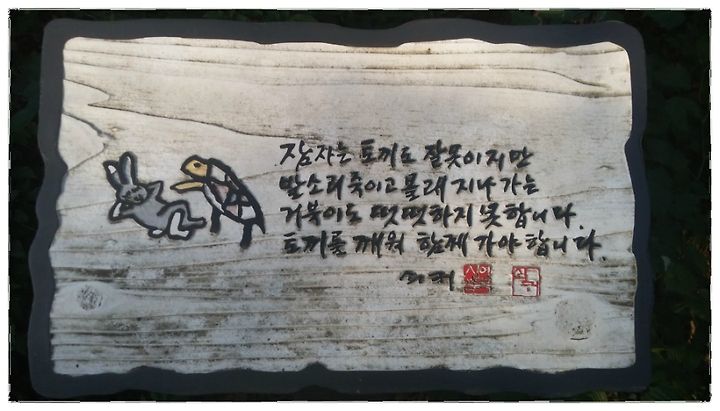 잠자는 토끼도 잘못이지만
발소리죽이고 몰래 지나가는
거북이도 떳떳하지 못합니다.
토끼를 깨워 함께 가야 합니다.